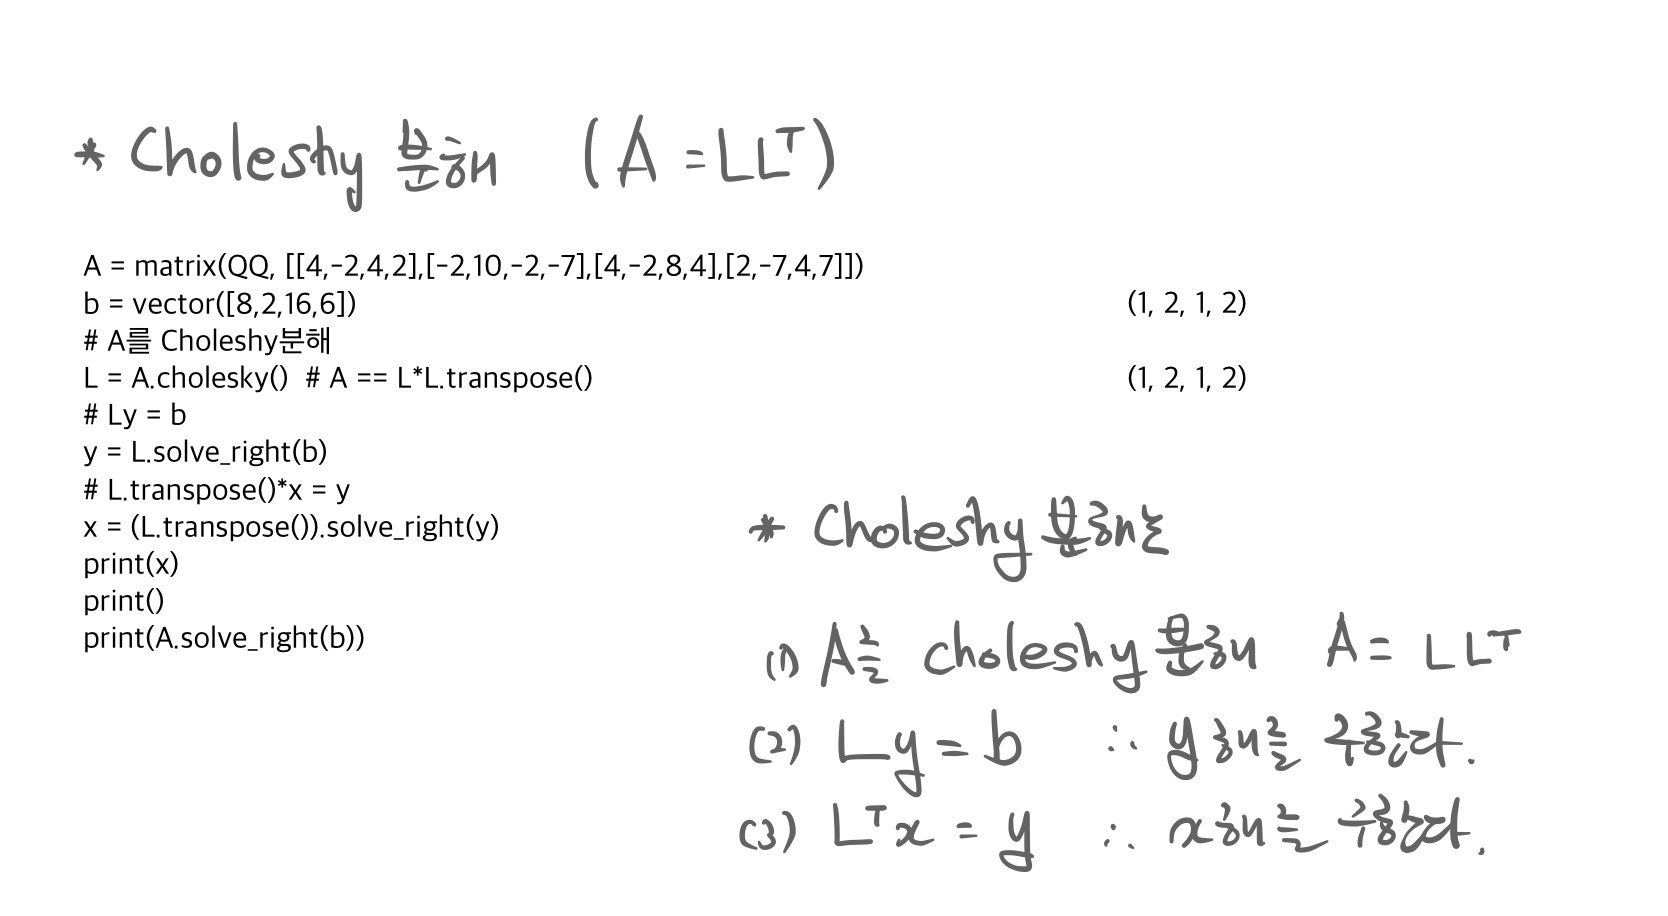 * Choleshy 분해 (A = LLᵀ)
A = matrix(QQ, [[4,-2,4,2],[-2,10,-2,-7],[4,-2,8,4],[2,-7,4,7]])
b = vector([8,2,16,6])
# A를 Choleshy분해
L = A.cholesky()  # A == L*L.transpose()
# Ly = b
y = L.solve_right(b)
# L.transpose()*x = y
x = (L.transpose()).solve_right(y)
print(x)
print()
print(A.solve_right(b))
(1, 2, 1, 2)
(1, 2, 1, 2)
* Choleshy 분해는
(1) A를 choleshy 분해 A = LLᵀ
(2) Ly = b ∴ y해를 구한다.
(3) Lᵀx = y ∴ x해를 구한다.